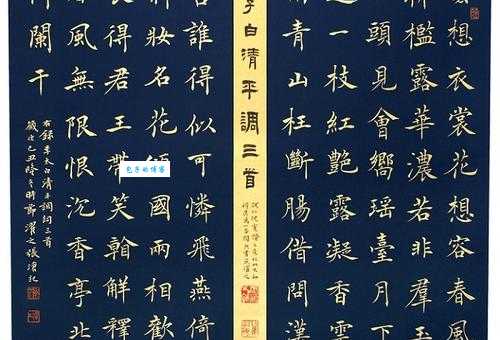 想衣裳花想容春風
檻露華濃若非群玉
頭見會嚮瑤臺月下
一枝紅艷露凝香雲
青山枉斷腸借問漢
白清平調三首
誰得似可憐飛燕倚
妝名花國兩相歡
長得君王帶笑翰解釋
風無限恨沉香亭北
闌干
右錄李太白清平調詞三首
歲次己丑隆冬時節濯之張記
包子的博客